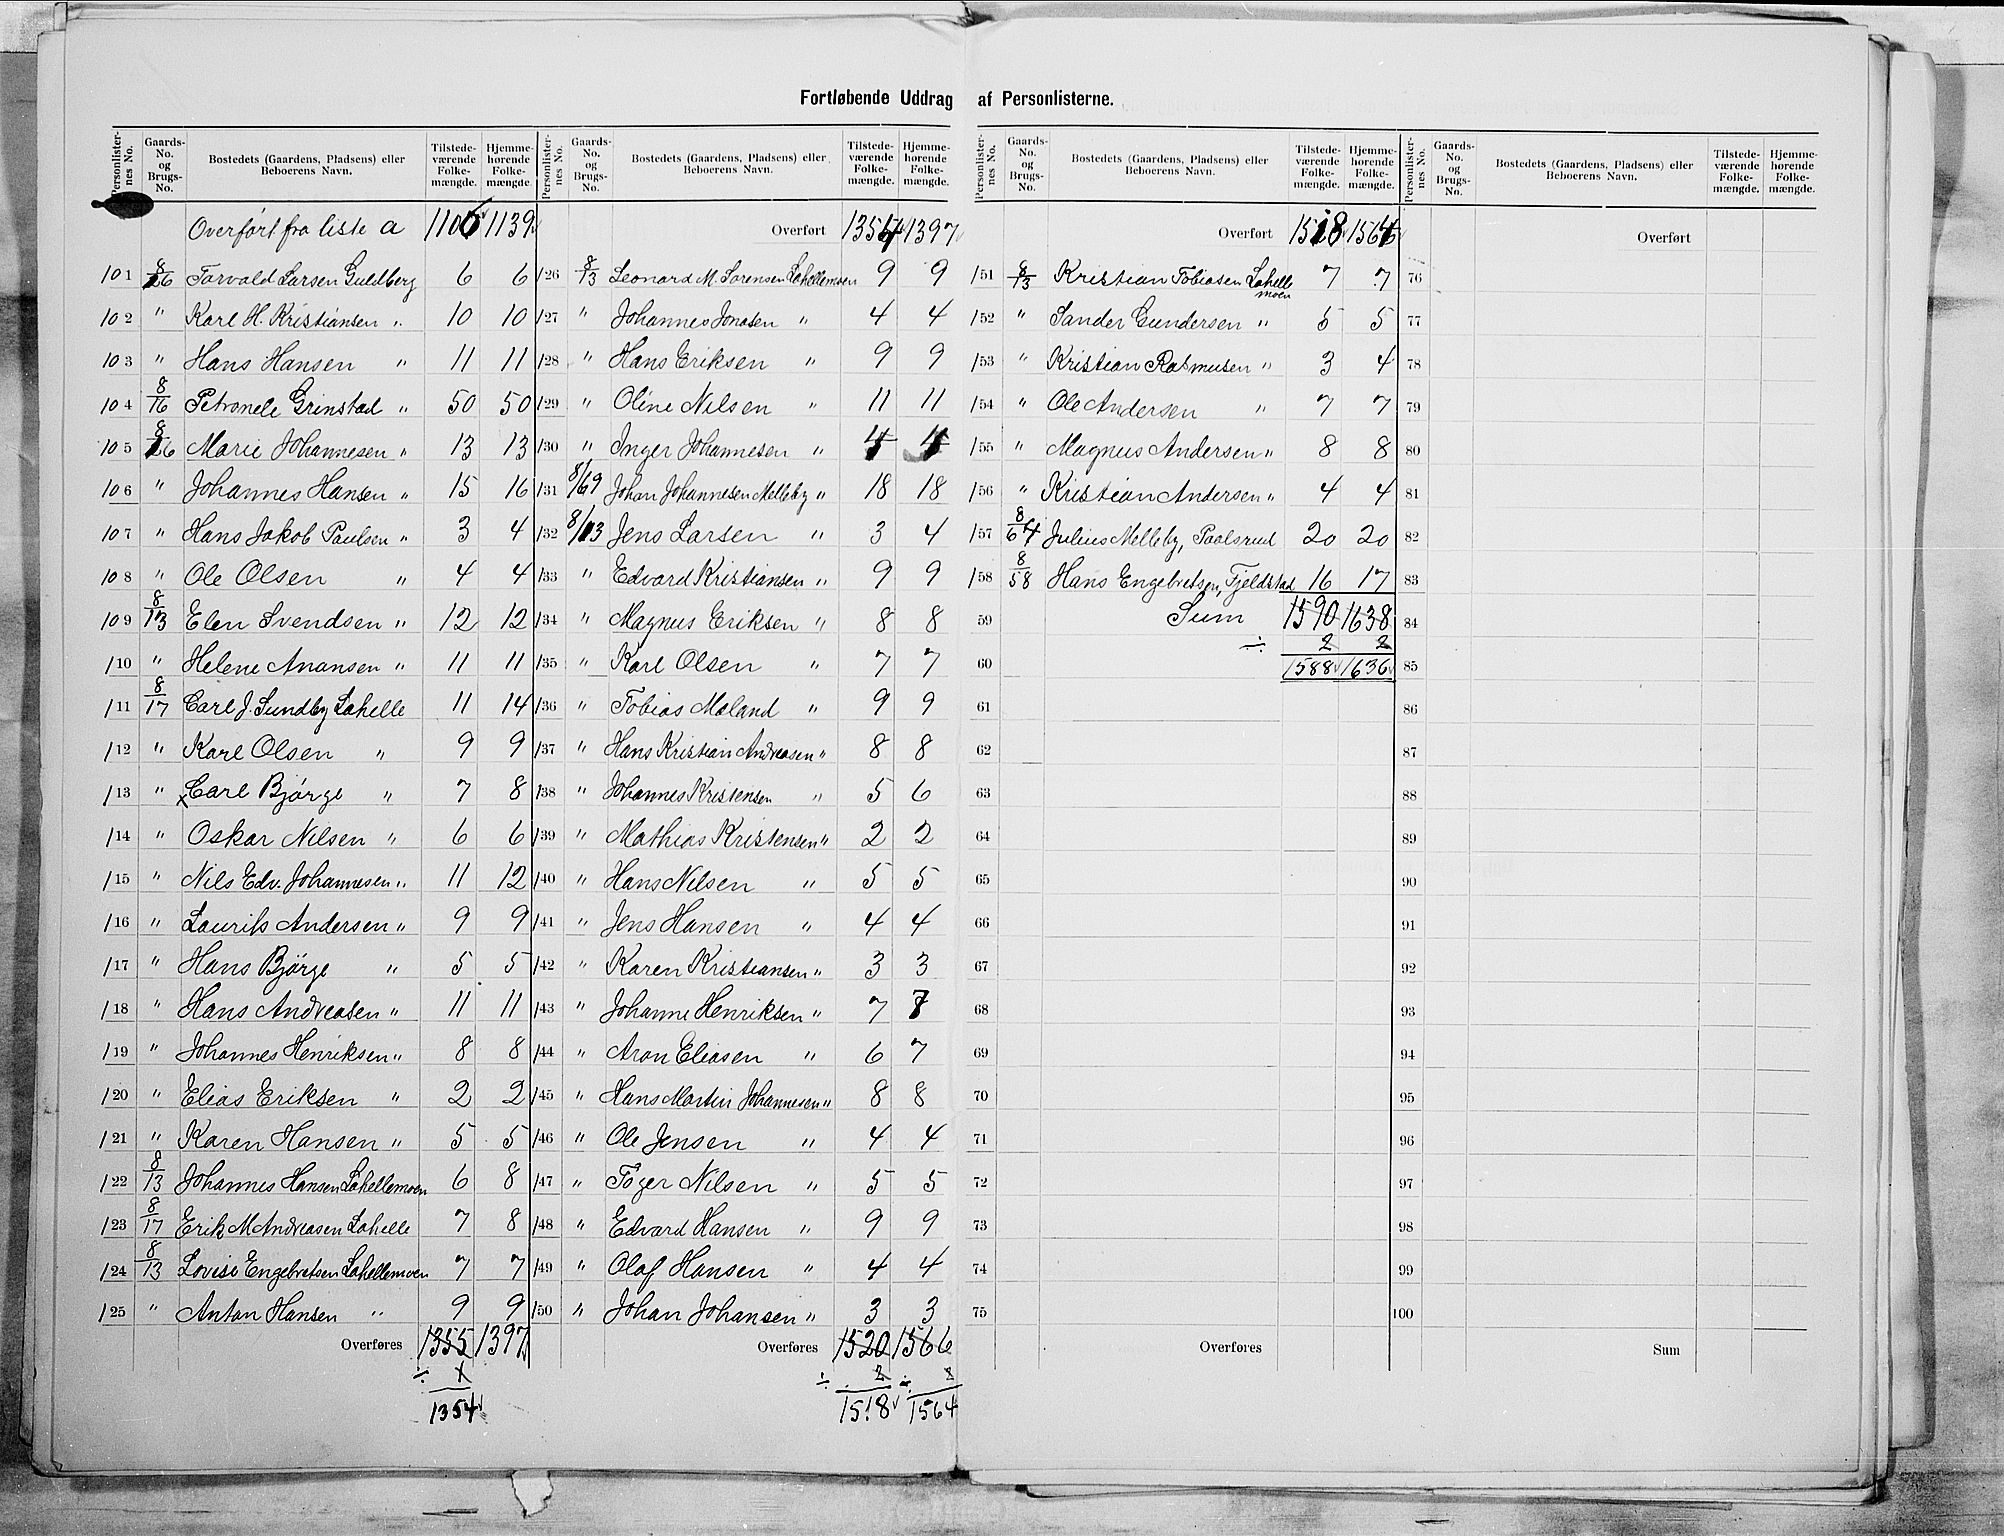 Fortløbende Uddrag af Personlisterne.
Personlisternes No. | Gaards-No. og Brugs-No. | Bostedets (Gaardens, Pladsens) eller Beboerens Navn. | Tilstedeværende Folkemængde. | Hjemmehørende Folkemængde.
Overført fra liste a 1106 1139
101 8/26 Torvald Larsen Guldberg 6 6
102 " Karl H. Kristiansen " 10 10
103 " Hans Hansen " 11 11
104 8/16 Petronele Grinstad " 50 50
105 8/26 Marie Johannesen " 13 13
106 " Johannes Hansen " 15 16
107 " Hans Jakob Paulsen " 3 4
108 " Ole Olsen " 4 4
109 8/13 Elen Svendsen " 12 12
110 " Helene Anansen " 11 11
111 8/17 Carl J. Sundby Lahelle 11 14
112 " Karl Olsen " 9 9
113 " x Carl Bjørge " 7 8
114 " Oskar Nilsen " 6 6
115 " Nils Edv. Johannesen " 11 12
116 " Laurits Andersen " 9 9
117 " Hans Bjørge " 5 5
118 " Hans Andreasen " 11 11
119 " Johannes Henriksen " 8 8
120 " Elias Eriksen " 2 2
121 " Karen Hansen " 5 5
122 8/13 Johannes Hansen Lahellemoen 6 8
123 8/17 Erik M Andreasen Lahelle 7 8
124 8/13 Lovise Engebretsen Lahellemoen 7 7
125 " Anton Hansen " 9 9
Overføres 1355 1397
÷ 1
1354
Personlisternes No. | Gaards-No. og Brugs-No. | Bostedets (Gaardens, Pladsens) eller Beboerens Navn. | Tilstedeværende Folkemængde. | Hjemmehørende Folkemængde.
Overført 1354 1397
126 8/13 Leonard M. Sørensen Lahellemoen 9 9
127 " Johannes Jonasen " 4 4
128 " Hans Eriksen " 9 9
129 " Oline Nilsen " 11 11
130 " Inger Johannesen "
131 8/69 Johan Johannesen Melleby " 18 18
132 8/13 Jens Larsen " 3 4
133 " Edvard Kristiansen " 9 9
134 " Magnus Eriksen " 8 8
135 " Karl Olsen " 7 7
136 " Tobias Maland " 9 9
137 " Hans Kristian Andreasen " 8 8
138 " Johannes Kristensen " 5 6
139 " Mathias Kristensen " 2 2
140 " Hans Nilsen " 5 5
141 " Jens Hansen " 4 4
142 " Karen Kristiansen " 3 3
143 " Johanne Henriksen " 7
144 " Aron Eliasen " 6 7
145 " Hans Martin Johannesen " 8 8
146 " Ole Jensen " 4 4
147 " Toger Nilsen " 5 5
148 " Edvard Hansen " 9 9
149 " Olaf Hansen " 4 4
150 " Johan Johansen " 3 3
Overføres 1520 1566
÷ 2 ÷ 2
1518 1564
Personlisternes No. | Gaards-No. og Brugs-No. | Bostedets (Gaardens, Pladsens) eller Beboerens Navn. | Tilstedeværende Folkemængde. | Hjemmehørende Folkemængde.
Overført 1518 1564
151 8/13 Kristian Tobiasen Lahellemoen 7 7
152 " Sander Gundersen " 5 5
153 " Kristian Rasmusen " 3 4
154 " Ole Andersen " 7 7
155 " Magnus Andersen " 8 8
156 " Kristian Andersen " 4 4
157 8/64 Julius Melleby, Paalsrud 20 20
158 8/58 Hans Engebretsen, Fjeldstad 16 17
59 Sum 1590 1638
÷ 2 2
60 1588 1636
61
62
63
64
65
66
67
68
69
70
71
72
73
74
75
Overføres
Personlisternes No. | Gaards-No. og Brugs-No. | Bostedets (Gaardens, Pladsens) eller Beboerens Navn. | Tilstedeværende Folkemængde. | Hjemmehørende Folkemængde.
Overført
76
77
78
79
80
81
82
83
84
85
86
87
88
89
90
91
92
93
94
95
96
97
98
99
100
Sum